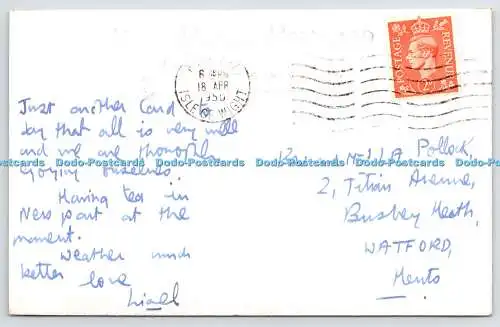 POSTAGE REVENUE
2D
6 PM
18 APR
1950
ISLE OF WIGHT
Just another Card
say that all is very well
and we are thoroughly
enjoying ourselves.
Having tea in
Newport at the
moment.
Weather much
better love
Lisel
Pollock,
2, Titian Avenue,
Bushey Heath,
WATFORD,
Herts
Dodo-Postcards Dodo-Postcards Dodo-Postcards Dodo-Postcards Dodo-Postcards